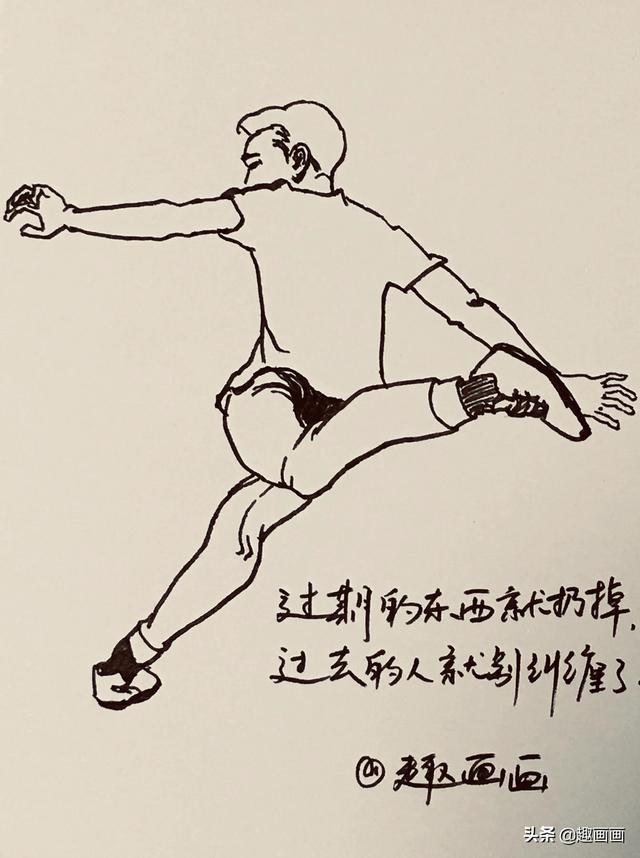 过期的东西就扔掉,
过去的人就别纠缠了.
@趣画画
头条 @趣画画